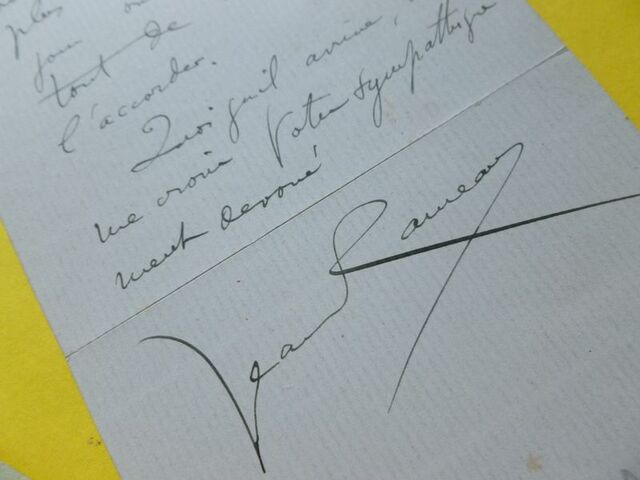 plus
jour
tout de
l'accorder.
Quoi qu'il arrive,
me croire Votre sympathique
ment dévoué
Jean Rameau